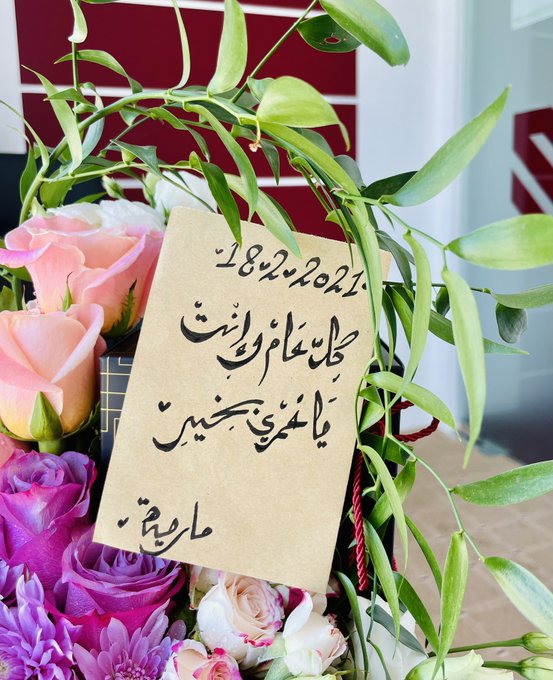 18.2.2021
كل عام وإنت
يا عمري بخير